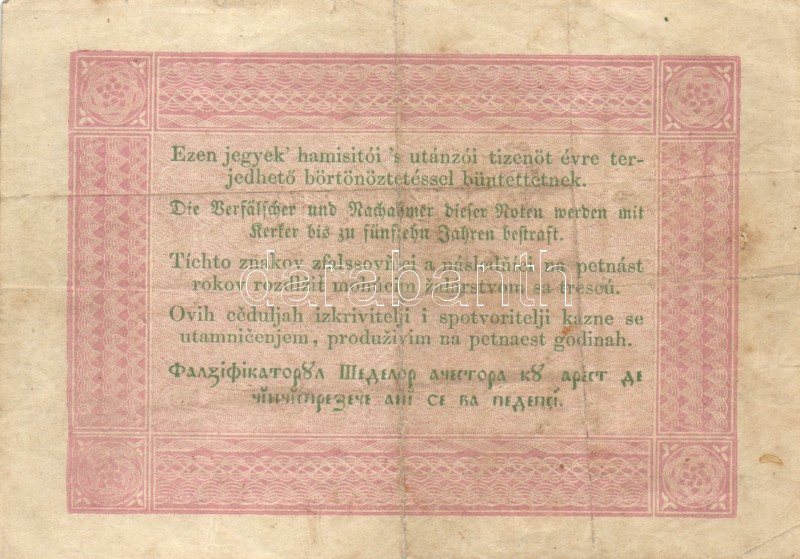 Ezen jegyek' hamisitói 's utánzói tizenöt évre ter-
jedhető börtönöztetéssel büntettetnek.
Die Verfälscher und Nachahmer dieser Noten werden mit
Kerker bis zu fünfzehn Jahren bestraft.
Tíchto znakov zfalssovňjci a násladňíci na petnást
rokov rozdlžiť mohúcim žalárstvom sa trescú.
darabanth
Ovih cěduljah izkrivitelji i spotvoritelji kazne se
utamničenjem, produživim na petnaest godinah.
Фалзіфікаторꙋл Шеделор ачестора кꙋ арест де
чінчіспрезече ані се ва педепсі.